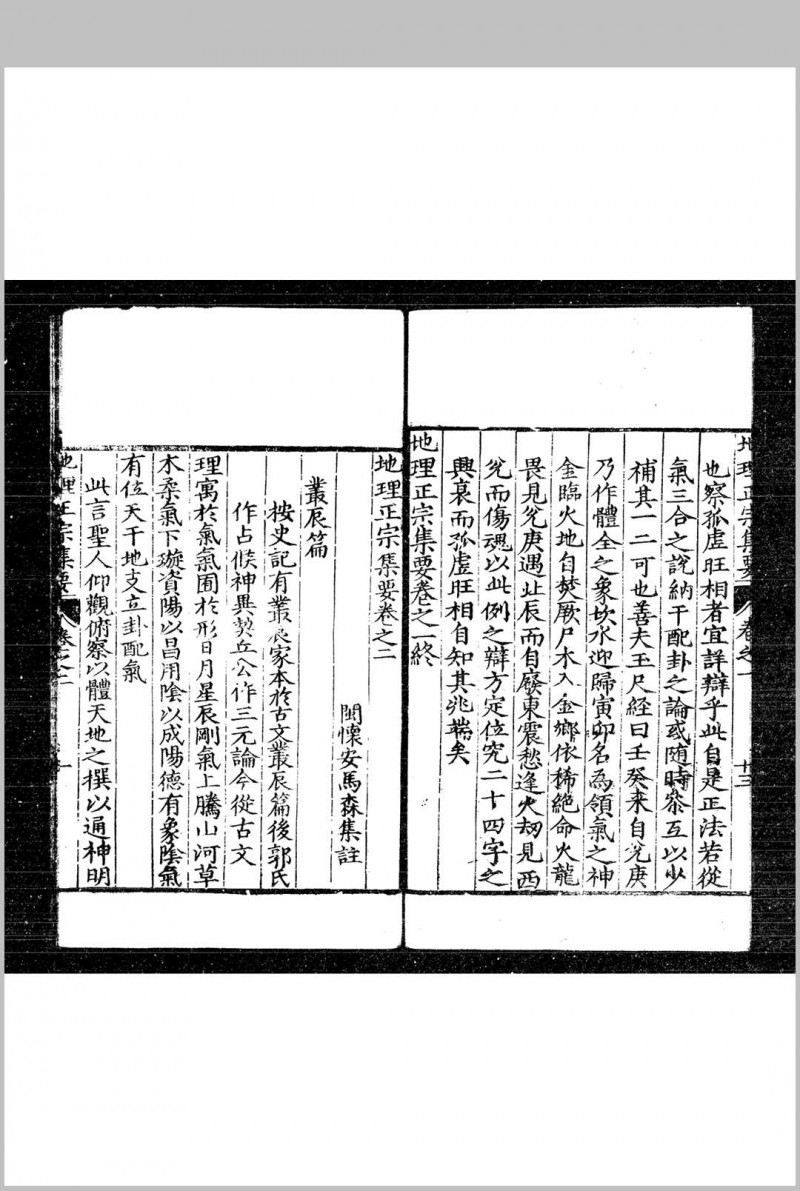 地理正宗集要 卷之一 十三
也察孤虛旺相者宜詳辯乎此自是正法若從
氣三合之說納干配卦之論或随時叅互以少
補其一二可也善夫玉尺經曰壬癸来自兊庚
乃作體全之象坎水迎歸寅卯名為領氣之神
金臨火地自焚厥尸木入金鄉依稀絕命火龍
畏見兊庚遇址辰而自廢東震愁逢火刼見西
兊而傷魂以此例之辯方定位究二十四字之
興衰而孤虛旺相自知其兆耑矣
地理正宗集要卷之一終
地理正宗集要卷之二
閩懷安馬森集註
叢辰篇
按史記有叢辰家本於古文叢辰篇後郭氏
作占候神異契丘公作三元論今從古文
理寓於氣氣囿於形日月星辰剛氣上騰山河草
木柔氣下璇資陽以昌用陰以成陽德有象陰氣
有位天干地支立卦配氣
此言聖人仰觀俯察以體天地之撰以通神明
地理正宗集要 卷之二 一